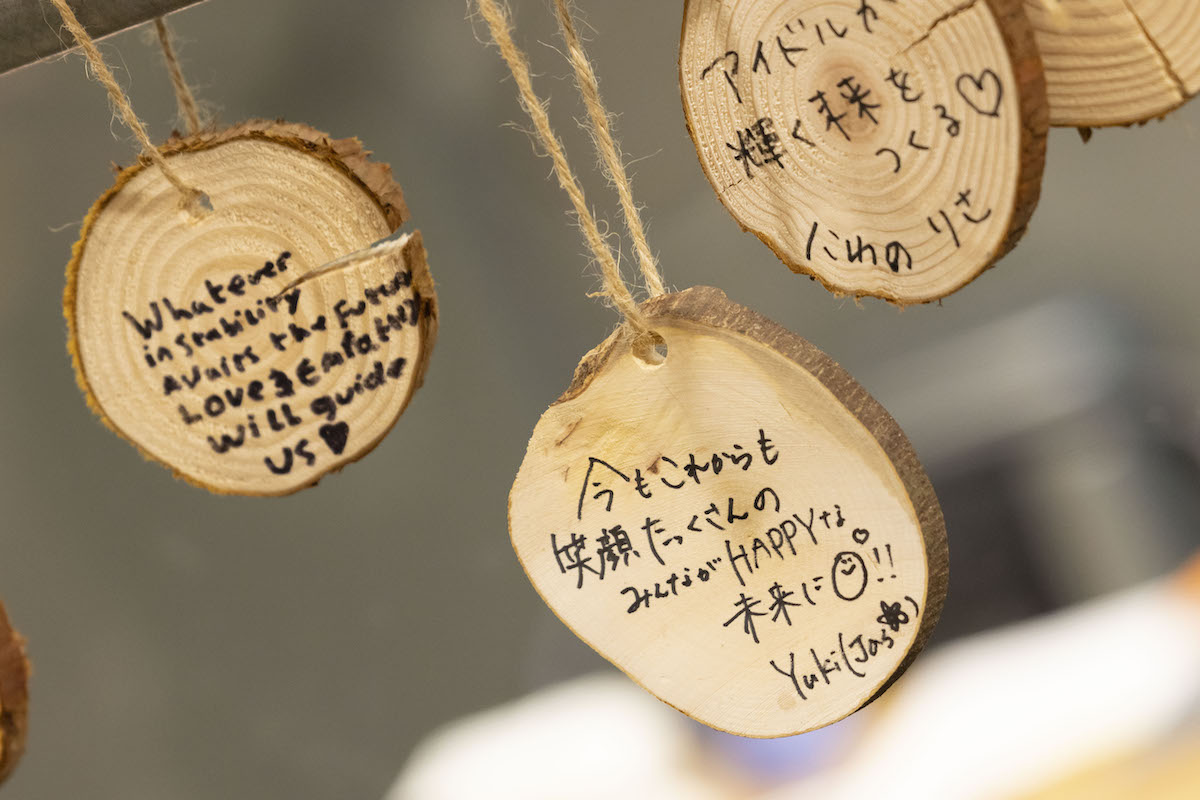 Whatever
instability
avaits the Future
Love & Empathy
will guide
us♥
今もこれからも
笑顔たっくさんの
みんなが HAPPYな
未来に!!
Yuki(Jas)
アイドルが
輝く未来を
つくる♡
にわのりさ